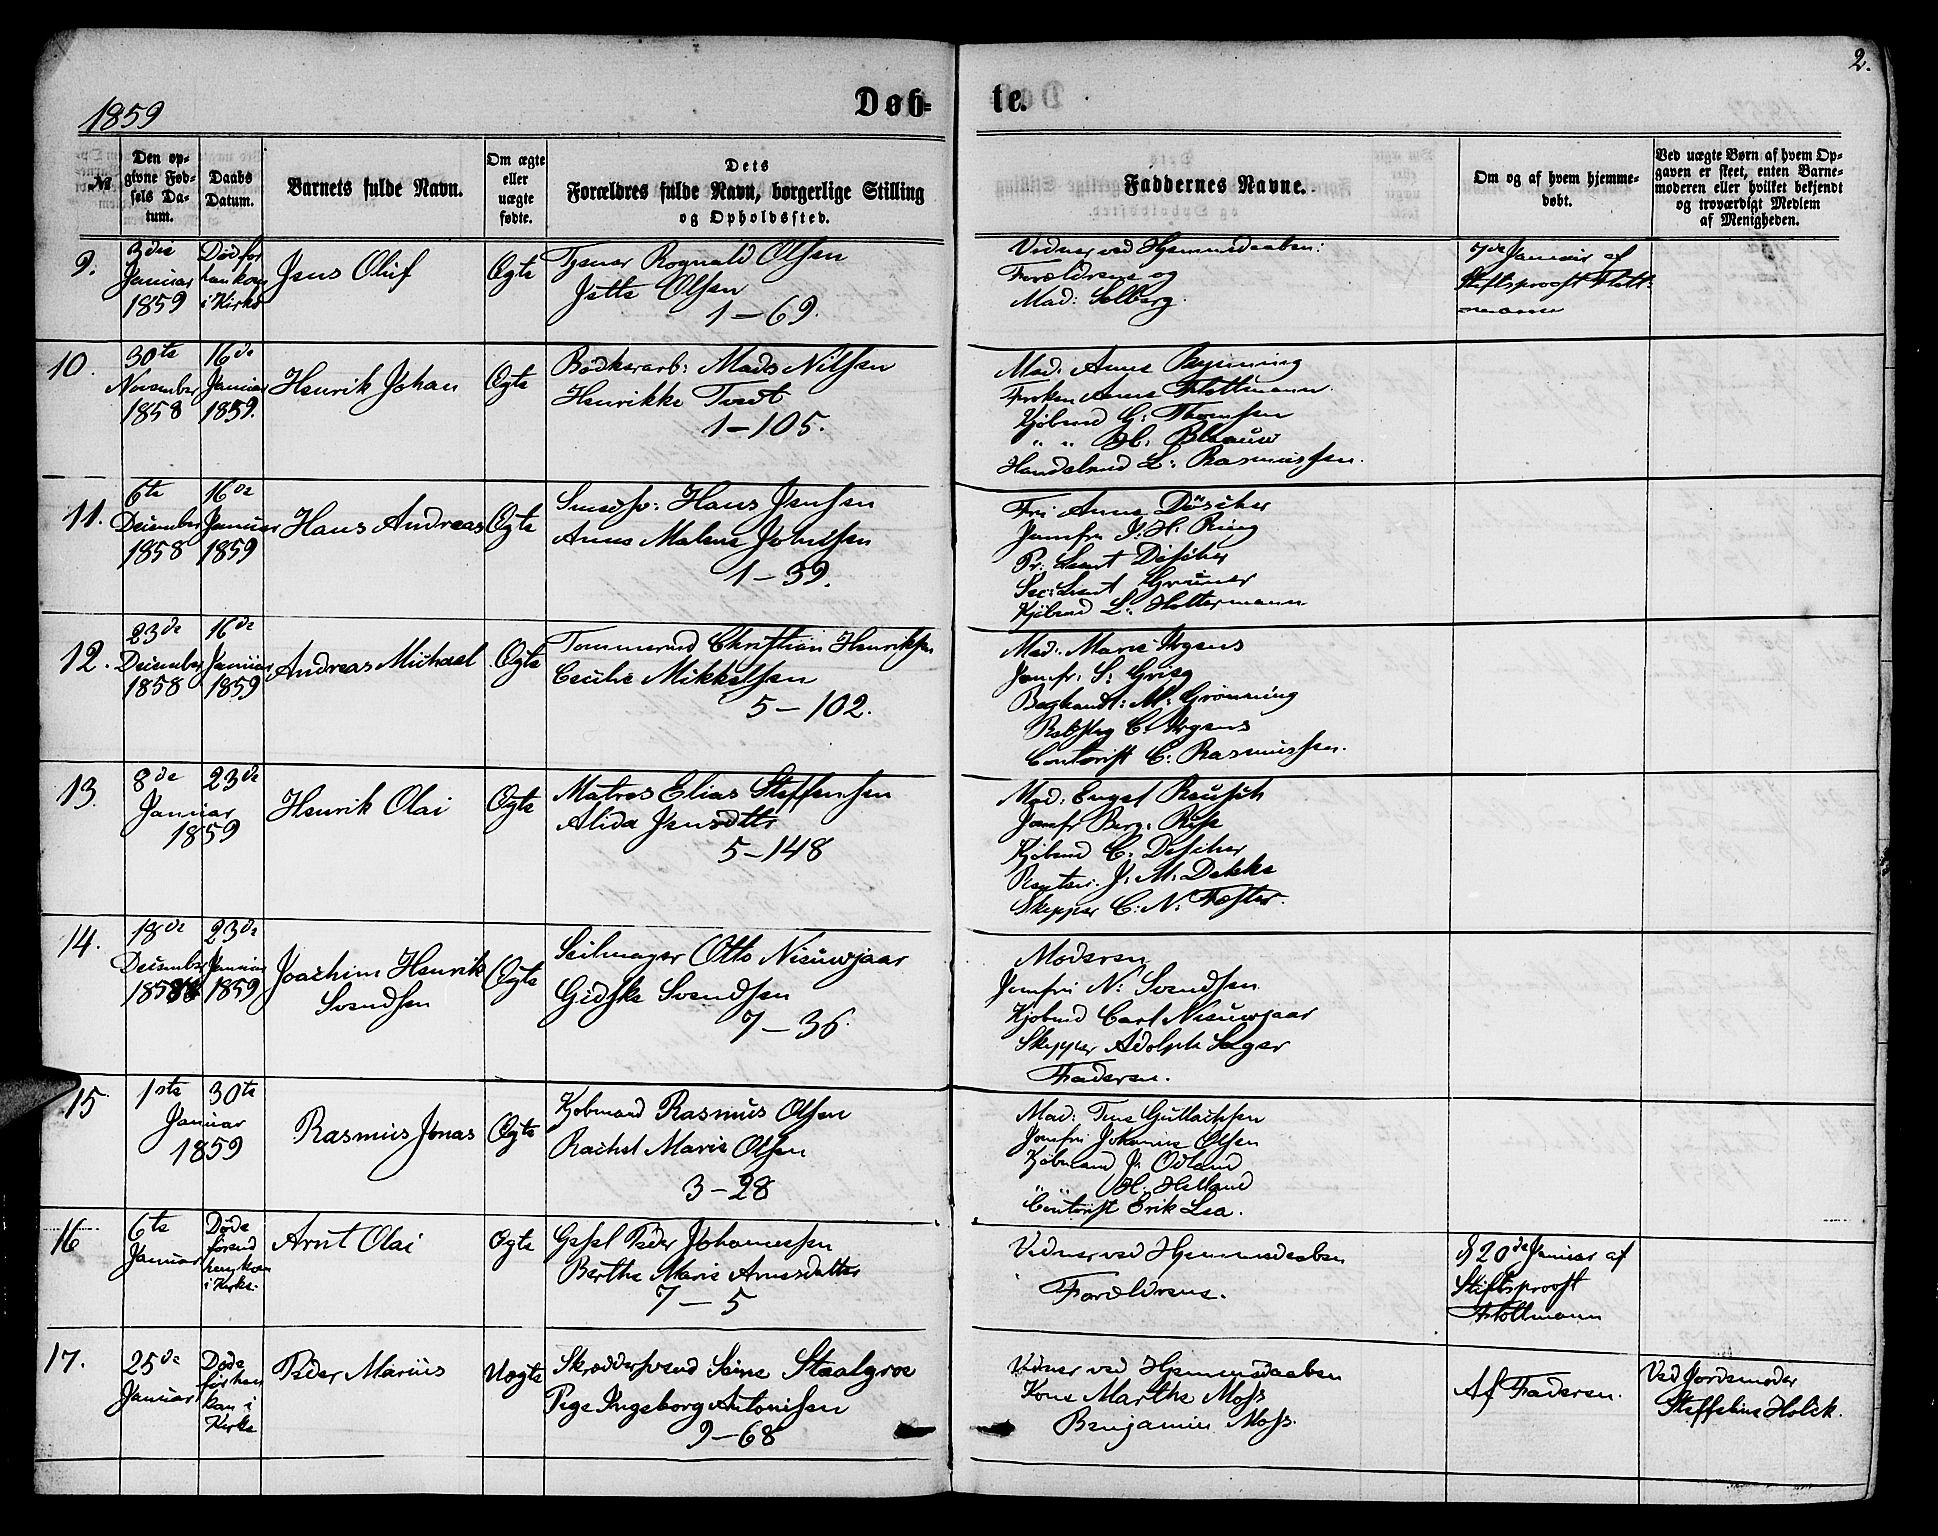 2.
1859
Døb-
te.
№
Den op-
givne Fød-
sels Da-
tum.
Daabs
Datum.
Barnets fulde Navn.
Om ægte
eller
uægte
fødte.
Dets
Forældres fulde Navn, borgerlige Stilling
og Opholdssted.
Faddernes Navne.
Om og af hvem hjemme-
døbt.
Ved uægte Børn af hvem Op-
gaven er skeet, enten Barne-
moderen eller hvilket bekjendt
og troværdigt Medlem
af Menigheden.
9.
3die
Januar
1859
Død før
han kom
i Kirke
Jens Oluf
Ægte
Rognald Olsen
Jette Olsen
1-69.
Vidner ved Hjemmedaaben:
Forældrene og
Mad: Solberg.
7de Januar af
Stiftsprovst Flott-
mann
10.
30te
November
1858
16de
Januar
1859.
Henrik Johan
Ægte
Bødkerarb: Mads Nilsen
Henrikke Tvedt
1-105.
Mad: Anne
Frøken Anna Flottmann
Kjøbmd G: Thomsen
" " H: Blaauw
Handelsmd L: Rasmussen.
11.
6te
December
1858
16de
Januar
1859
Hans Andreas
Ægte
Smedsv: Hans Jensen
Anne Malene Johnsen
1-39.
Fru Anna Düscher
Jomfru J: H: Ring
Pr: Lieut Discher
Sec: Lieut Grüner
Kjøbmd L: Holtermann
12.
23de
December
1858
16de
Januar
1859
Andreas Michael
Ægte
Tømmermd Christian Henriksen
Cecilie Mikkelsen
5-102.
Mad: Marie Irgens
Jomfr: S: Grieg
Boghandl: M: Grönning
Rebslag C: Irgens
Contorist C: Rasmussen.
13.
8de
Januar
1859
23de
Henrik Olai
Ægte
Matros Elias Steffensen
Alida Jensdttr
5-148
Mad: Engel Reusch
Jomfr Berg:
Kjøbmd C: Discher
J: M: Dekke
Skipper C: N: Fæster.
14.
18de
December
1858
23de
Januar
1859
Joachim Henrik
Svendsen
Ægte
Seilmager Otto Nieuwjaar
Gidske Svendsen
7-36.
Moderen
Jomfru N: Svendsen
Kjøbmd Carl Nieuwjaar
Skipper Adolph Seger
Faderen.
15
1ste
Januar
1859
30te
Rasmus Jonas
Ægte
Kjøbmand Rasmus Olsen
Rachel Marie Olsen
3-28
Mad: Tine Gullachsen
Jomfru Johanne Olsen
Kjøbmand J: Odland
" H: Helland
Contorist Erik Lea.
16
6te
Januar
Døde
førend
han kom
i Kirke.
Arnt Olai
Ægte
Gesel Peder Johannessen
Berthe Marie Arnesdatter
7-5
Vidner ved Hjemmedaaben
Forældrene.
d 20de Januar af
Stiftsprovst
Flottmann
17.
25de
Januar
Døde
før han
kom i
Kirke
Peder Marius
Uægte
Skræddersvend Seine Staalgroe
Pige Ingeborg Antonisen
9-68
Vidner ved Hjemmedaaben
Kone Marthe Moss
Benjamin Moss.
Af Faderen.
Ved Jordemoder
Steffeline Holck.